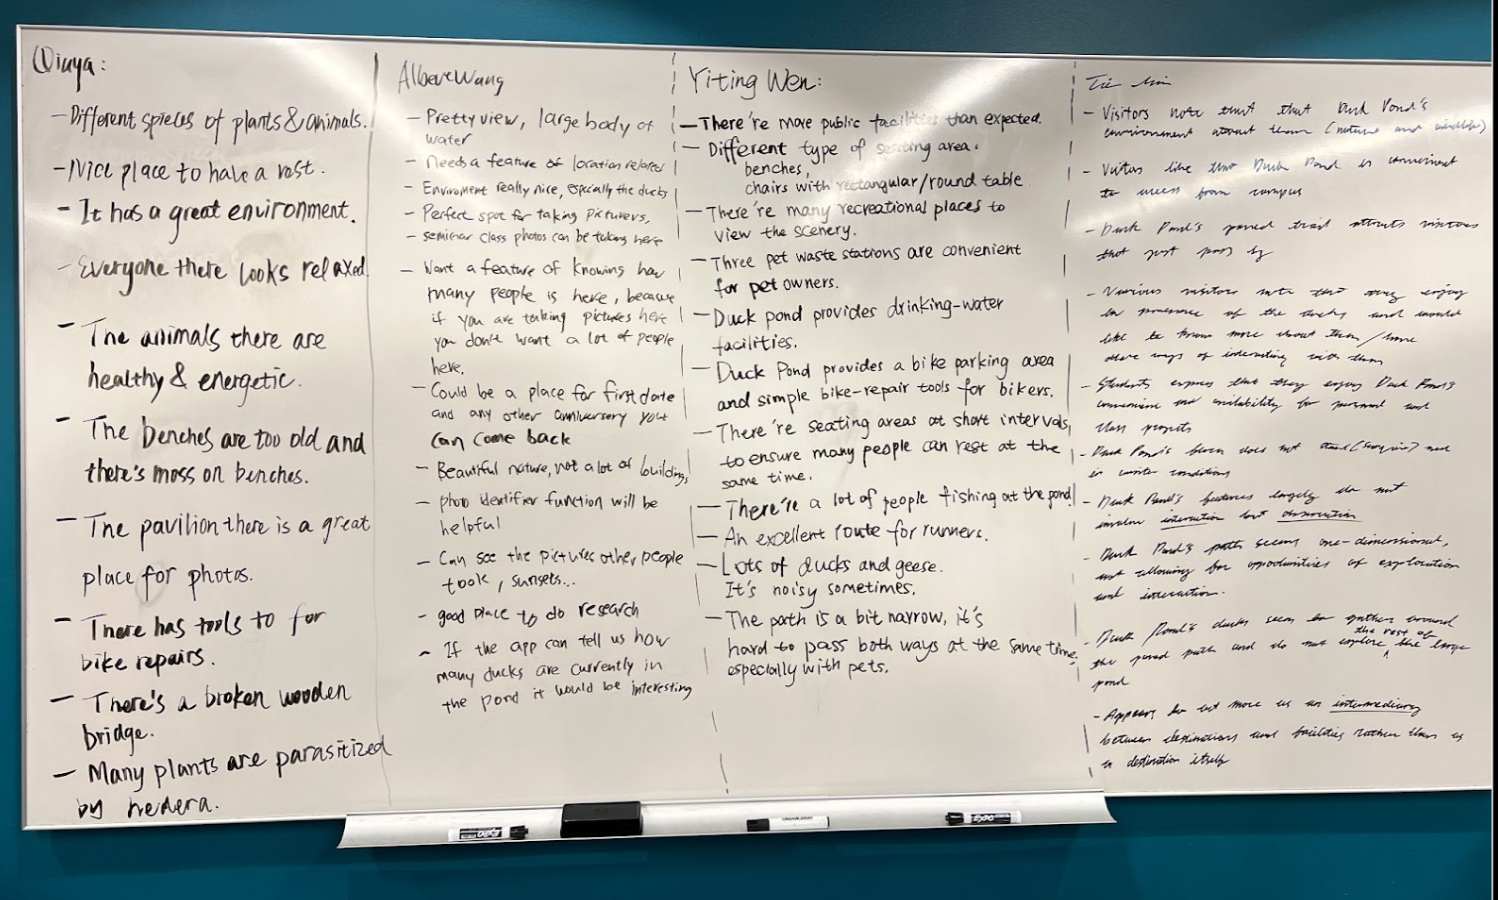 Qiuya:
-Different spieces of plants & animals.
-Nice place to have a rest.
- It has a great environment.
- Everyone there looks relaxed.
- The animals there are
healthy & energetic.
- The benches are too old and
there's moss on benches.
- The pavilion there is a great
place for photos.
- There has tools to for
bike repairs.
- There's a broken wooden
bridge.
- Many plants are parasitized
by hedera.
Wang
- Pretty view, large body of
water
- Needs a feature of location related
- Enviroment really nice, especially the ducks
- Perfect spot for taking picturers,
- seminar class photos can be taking here
- Want a feature of knowing how
many people is here, because
if you are taking pictures here
you don't want a lot of people
here.
- Could be a place for first date
and any other anniversary you
can come back
- Beautiful nature, not a lot of buildings
- photo identifier function will be
helpful
- Can see the pictures other people
took, sunsets...
- good place to do research
- If the app can tell us how
many ducks are currently in
the pond it would be interesting
Yiting Wen:
- There're more public facilities than expected.
- Different type of seating area.
benches,
chairs with rectangular/round table
- There're many recreational places to
view the scenery.
- Three pet waste stations are convenient
for pet owners.
- Duck pond provides drinking-water
facilities.
- Duck Pond provides a bike parking area
and simple bike-repair tools for bikers.
- There're seating areas at short intervals,
to ensure many people can rest at the
same time.
- There're a lot of people fishing at the pond
- An excellent route for runners.
- Lots of ducks and geese.
It's noisy sometimes.
- The path is a bit narrow, it's
hard to pass both ways at the same time,
especially with pets.
- Visitors note that that Duck Pond's
environment around them (nature and wildlife)
- Visitors like that Duck Pond is convenient
to access from campus
- Duck Pond's paved trail attracts visitors
that just pass by
- Various visitors note that they enjoy
the presence of the ducks and would
like to know more about them/more
ways of interacting with them
- Students express that they enjoy Duck Pond's
convenience and availability for personal and
class projects
- Duck Pond's does not
in winter conditions
- Duck Pond's features largely do not
involve interaction but observation
- Duck Pond's paths seems one-dimensional,
not allowing for opportunities of exploration
and interaction.
- Duck Pond's ducks seem to gather around
the paved path and do not explore the rest of the large
pond
- Appears to act more as an intermediary
between destinations and facilities rather than as
a destination itself